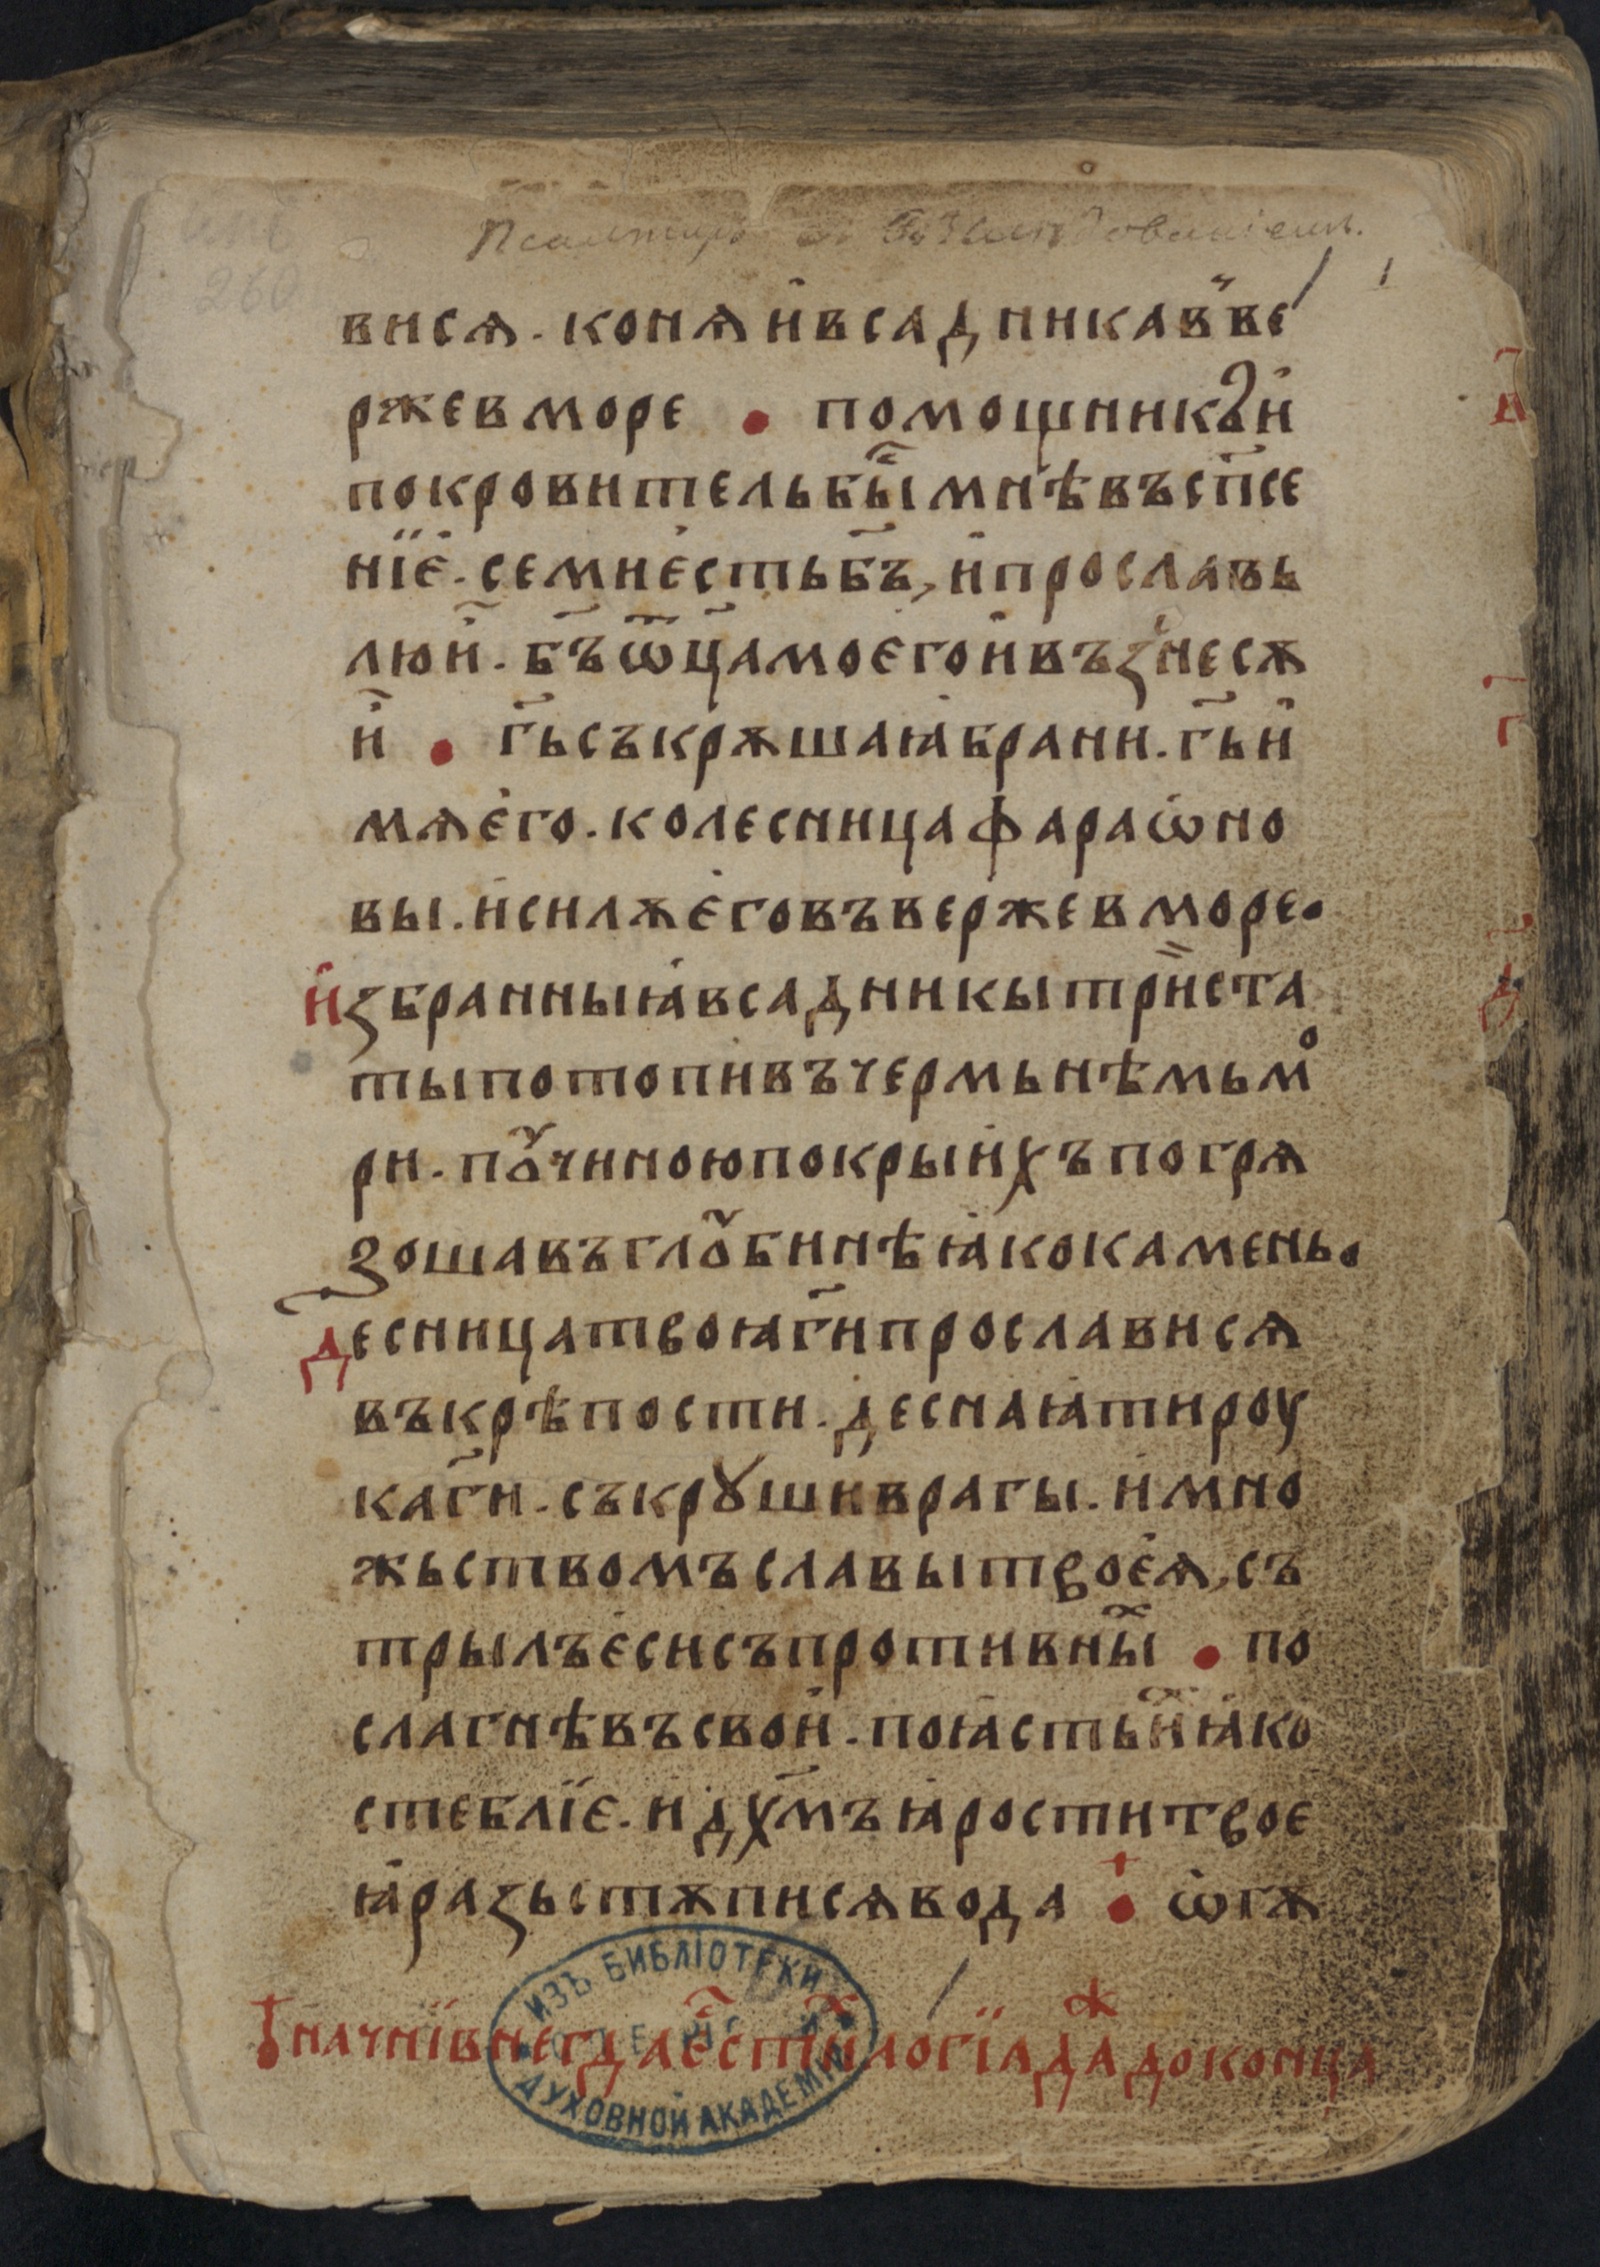 Псалтирь съ возслѣдованіемъ.
260
1
висѧ · конѧ и҆ всадника в̾ве
рже в море • помощникꙋ и҆
покровитель бы҄ мнѣ въ сп҃се
нїе҆ · се мнѣ е҆сть б҃ъ, и҆ прославь
лю и҆ · б҃ъ ѿц҃а моего и҆ възнесѫ
и҆ • г҃ь съкрѫшаꙗ҆ брани · г҃ь и҆
мѧ е҆го · колесница фараѡ҆но
вы · и҆ силѫ е҆го въверже в море •
И҆збранныꙗ҆ всадникы три́ста
ты потопи въ чермьнѣмь мо
ри · пꙋчиною покры и҆хъ погрѧ
зоша въ глꙋбинѣ ꙗ҆ко камень •
Десница твоꙗ҆ г҃и прослависѧ
въ крѣпости · деснаꙗ҆ ти роу
ка г҃и · съкрꙋши врагы · и҆ мно
жьствомъ славы твоеѧ҆, съ
трылъ е҆си съпротивны҄ • по
сла гнѣвъ свои҆ · поꙗ҆сть и҄ ꙗ҆ко
стеблїе · и҆ дх҃мъ ꙗ҆рости твое
ꙗ҆ разьстѫписѧ вода • ѡ҆гѫ
в҃
г҃
д҃
начнїв негда е҆ст и҄ логїа дд҃а до конца
ИЗЪ БИБЛІОТЕКИ
ДУХОВНОЙ АКАДЕМІИ